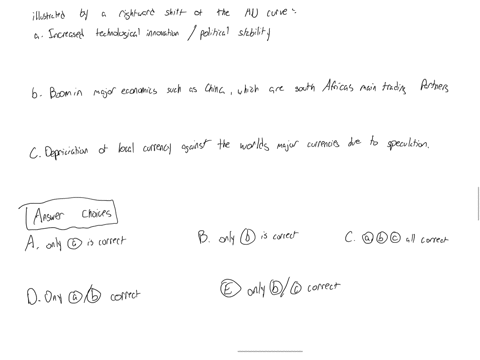 illustrated by a rightward shift of the AD curve:
a. Increased technological innovation / political stability
b. Boom in major economies such as China, which are south Africas main trading Partners
C. Depriciation of local currency against the worlds major currencies due to speculation.
Answer Choices
A. only ⓐ is correct
B. only ⓑ is correct
C. ⓐ ⓑ ⓒ all correct
D. Only ⓐ/ⓑ correct
Ⓔ only ⓑ/ⓒ correct